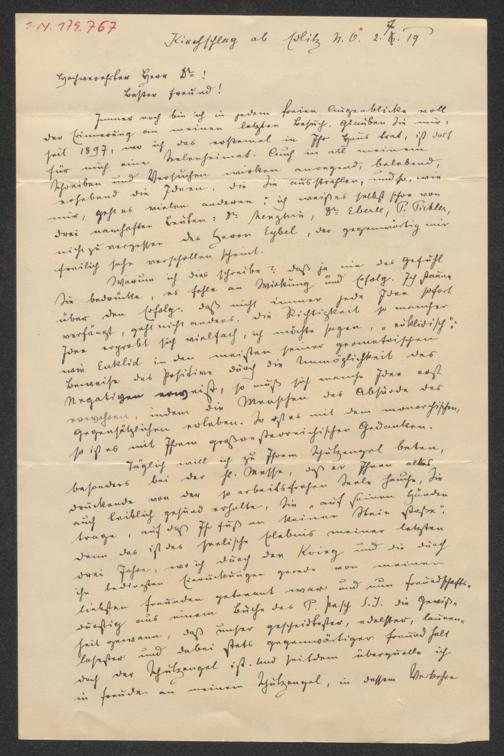 I.N. 179.767
Kirchschlag ob Edlitz N.Ö. 2. 19
Hochverehrter Herr Dr.!
Bester Freund!
Immer noch bin ich in jedem freien Augenblicke voll
der Erinnerung an meinen letzten Besuch. Glauben Sie mir:
seit 1897, wo ich das erstemal in Ihr Haus trat, ist dort
für mich eine Seelenheimat. Auch in all meinem
Schreiben und Versuchen wirken anregend, belebend,
erhebend die Ideen, die Sie ausstrahlen, und so, wie
mir, geht es vielen anderen: ich weiß es selbst schon von
drei namhaften Leuten: Dr. Dr. Eberle, P. Pichler,
nicht zu vergessen des Herrn Eybel, der gegenwärtig mir
freilich sehr verschollen scheint.
Warum ich dies schreibe? daß ja nie das Gefühl
Sie bedrücke, es fehle an Wirkung und Erfolg. Ich staune
über den Erfolg. Daß nicht immer jede Idee sofort
verfängt, geht nicht anders. Die Richtigkeit so mancher
Idee ergibt sich vielfach, ich möchte sagen, "euklidisch":
wie Euklid in den meisten seiner geometrischen
Beweise das Positive durch die Unmöglichkeit des
Negativen erweist, so muß sich manche Idee erst
erwahren, indem die Menschen das Absurde des
Gegensätzlichen erleben. So ist es mit dem monarchischen,
so ist es mit Ihrem großösterreichischen Gedanken.
Täglich will ich zu Ihrem Schutzengel beten,
besonders bei der hl. Messe, daß er Ihnen alles
Drückende von der so arbeitsfrohen Seele hauche, Sie
auch leiblich gesund erhalte, Sie "auf seinen Händen
trage, auf daß Ihr Fuß an keinen Stein stoße".
Denn das ist das seelische Erlebnis meiner letzten
drei Jahre, wo ich durch den Krieg und die durch
ihn bedingten Einwirkungen gerade von meinen
liebsten Freunden getrennt war und nun freundschafts-
durstig aus einem Buche des P. Pesch S.J. die Gewiß-
heit gewann, daß unser gescheidtester, edelster,
und dabei stets gegenwärtiger Freund halt
doch der Schutzengel ist. Und seitdem überquelle ich
in Freude an meinem Schutzengel, in dessen Verkehre